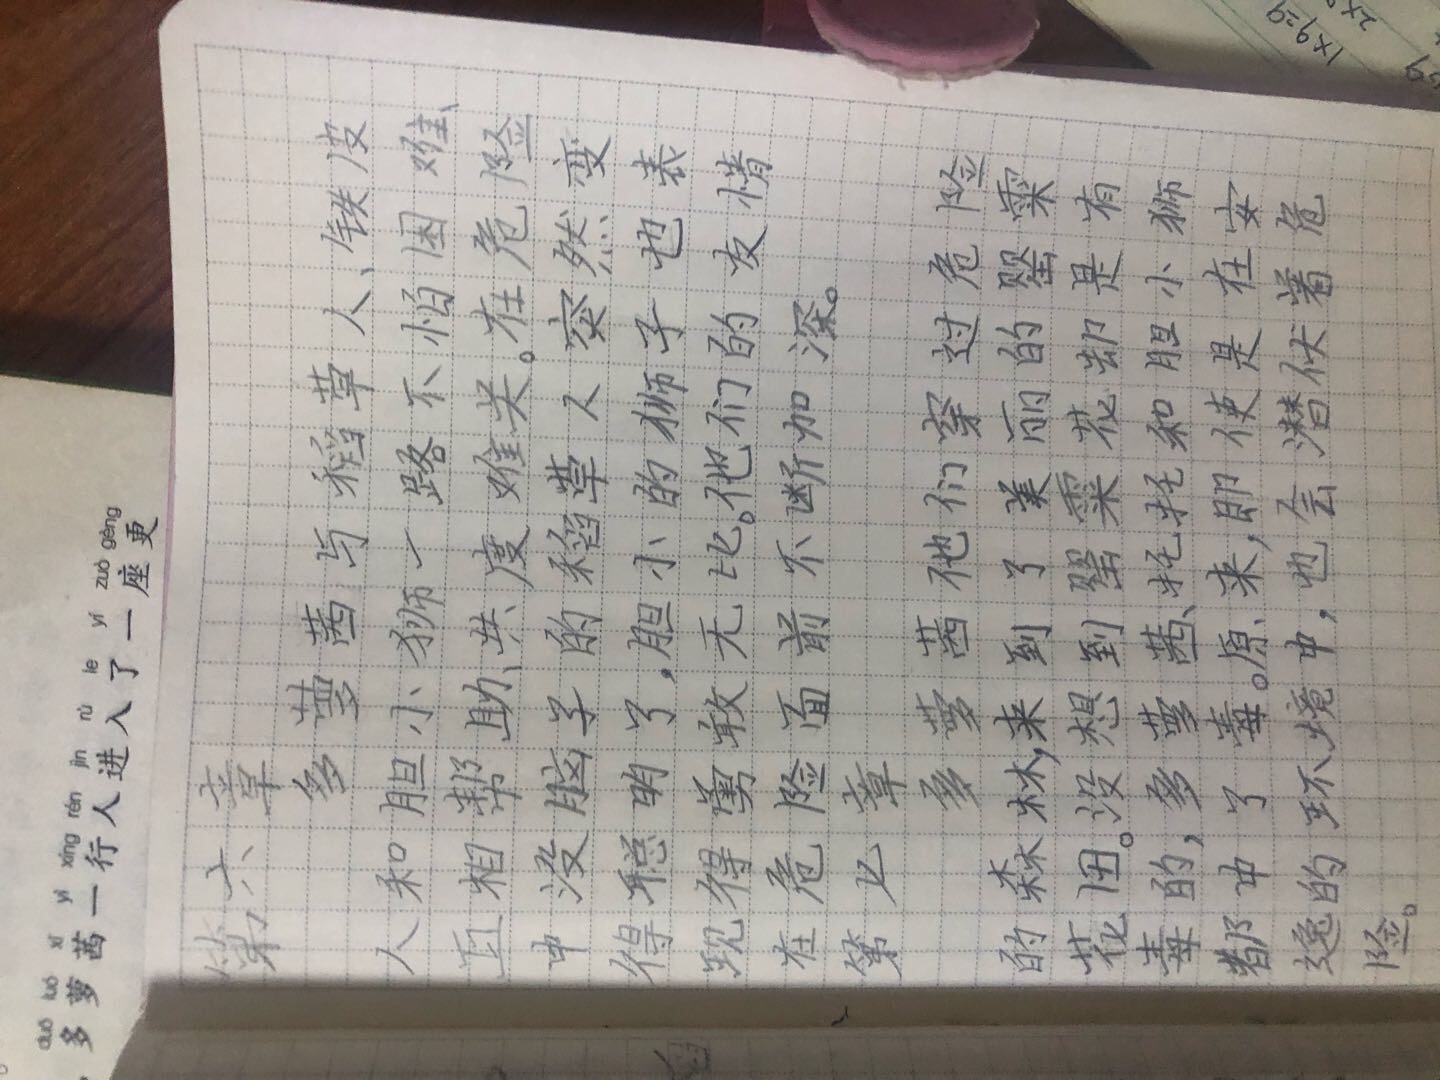 duō luó xī yì xíng rén jìn rù le yí zuò gèng
多萝茜一行人进入了一座更
第六章
多萝茜与稻草人、铁皮
人和胆小狮一路不怕困难、
互相帮助、共度难关。在危险
中没脑子的稻草人突然变
得聪明了,胆小的狮子也表
现得勇敢无比。他们的友情
在危险面前不断加深。
第七章
多萝茜他们穿过危险
的森林,来到了美丽的罂粟
花田。没想到罂粟花却是有
毒的,多萝茜、托托和胆小狮
都中了毒。原来,即使是在安
逸的环境中,也会潜伏着危
险。
1×9=9
2×9